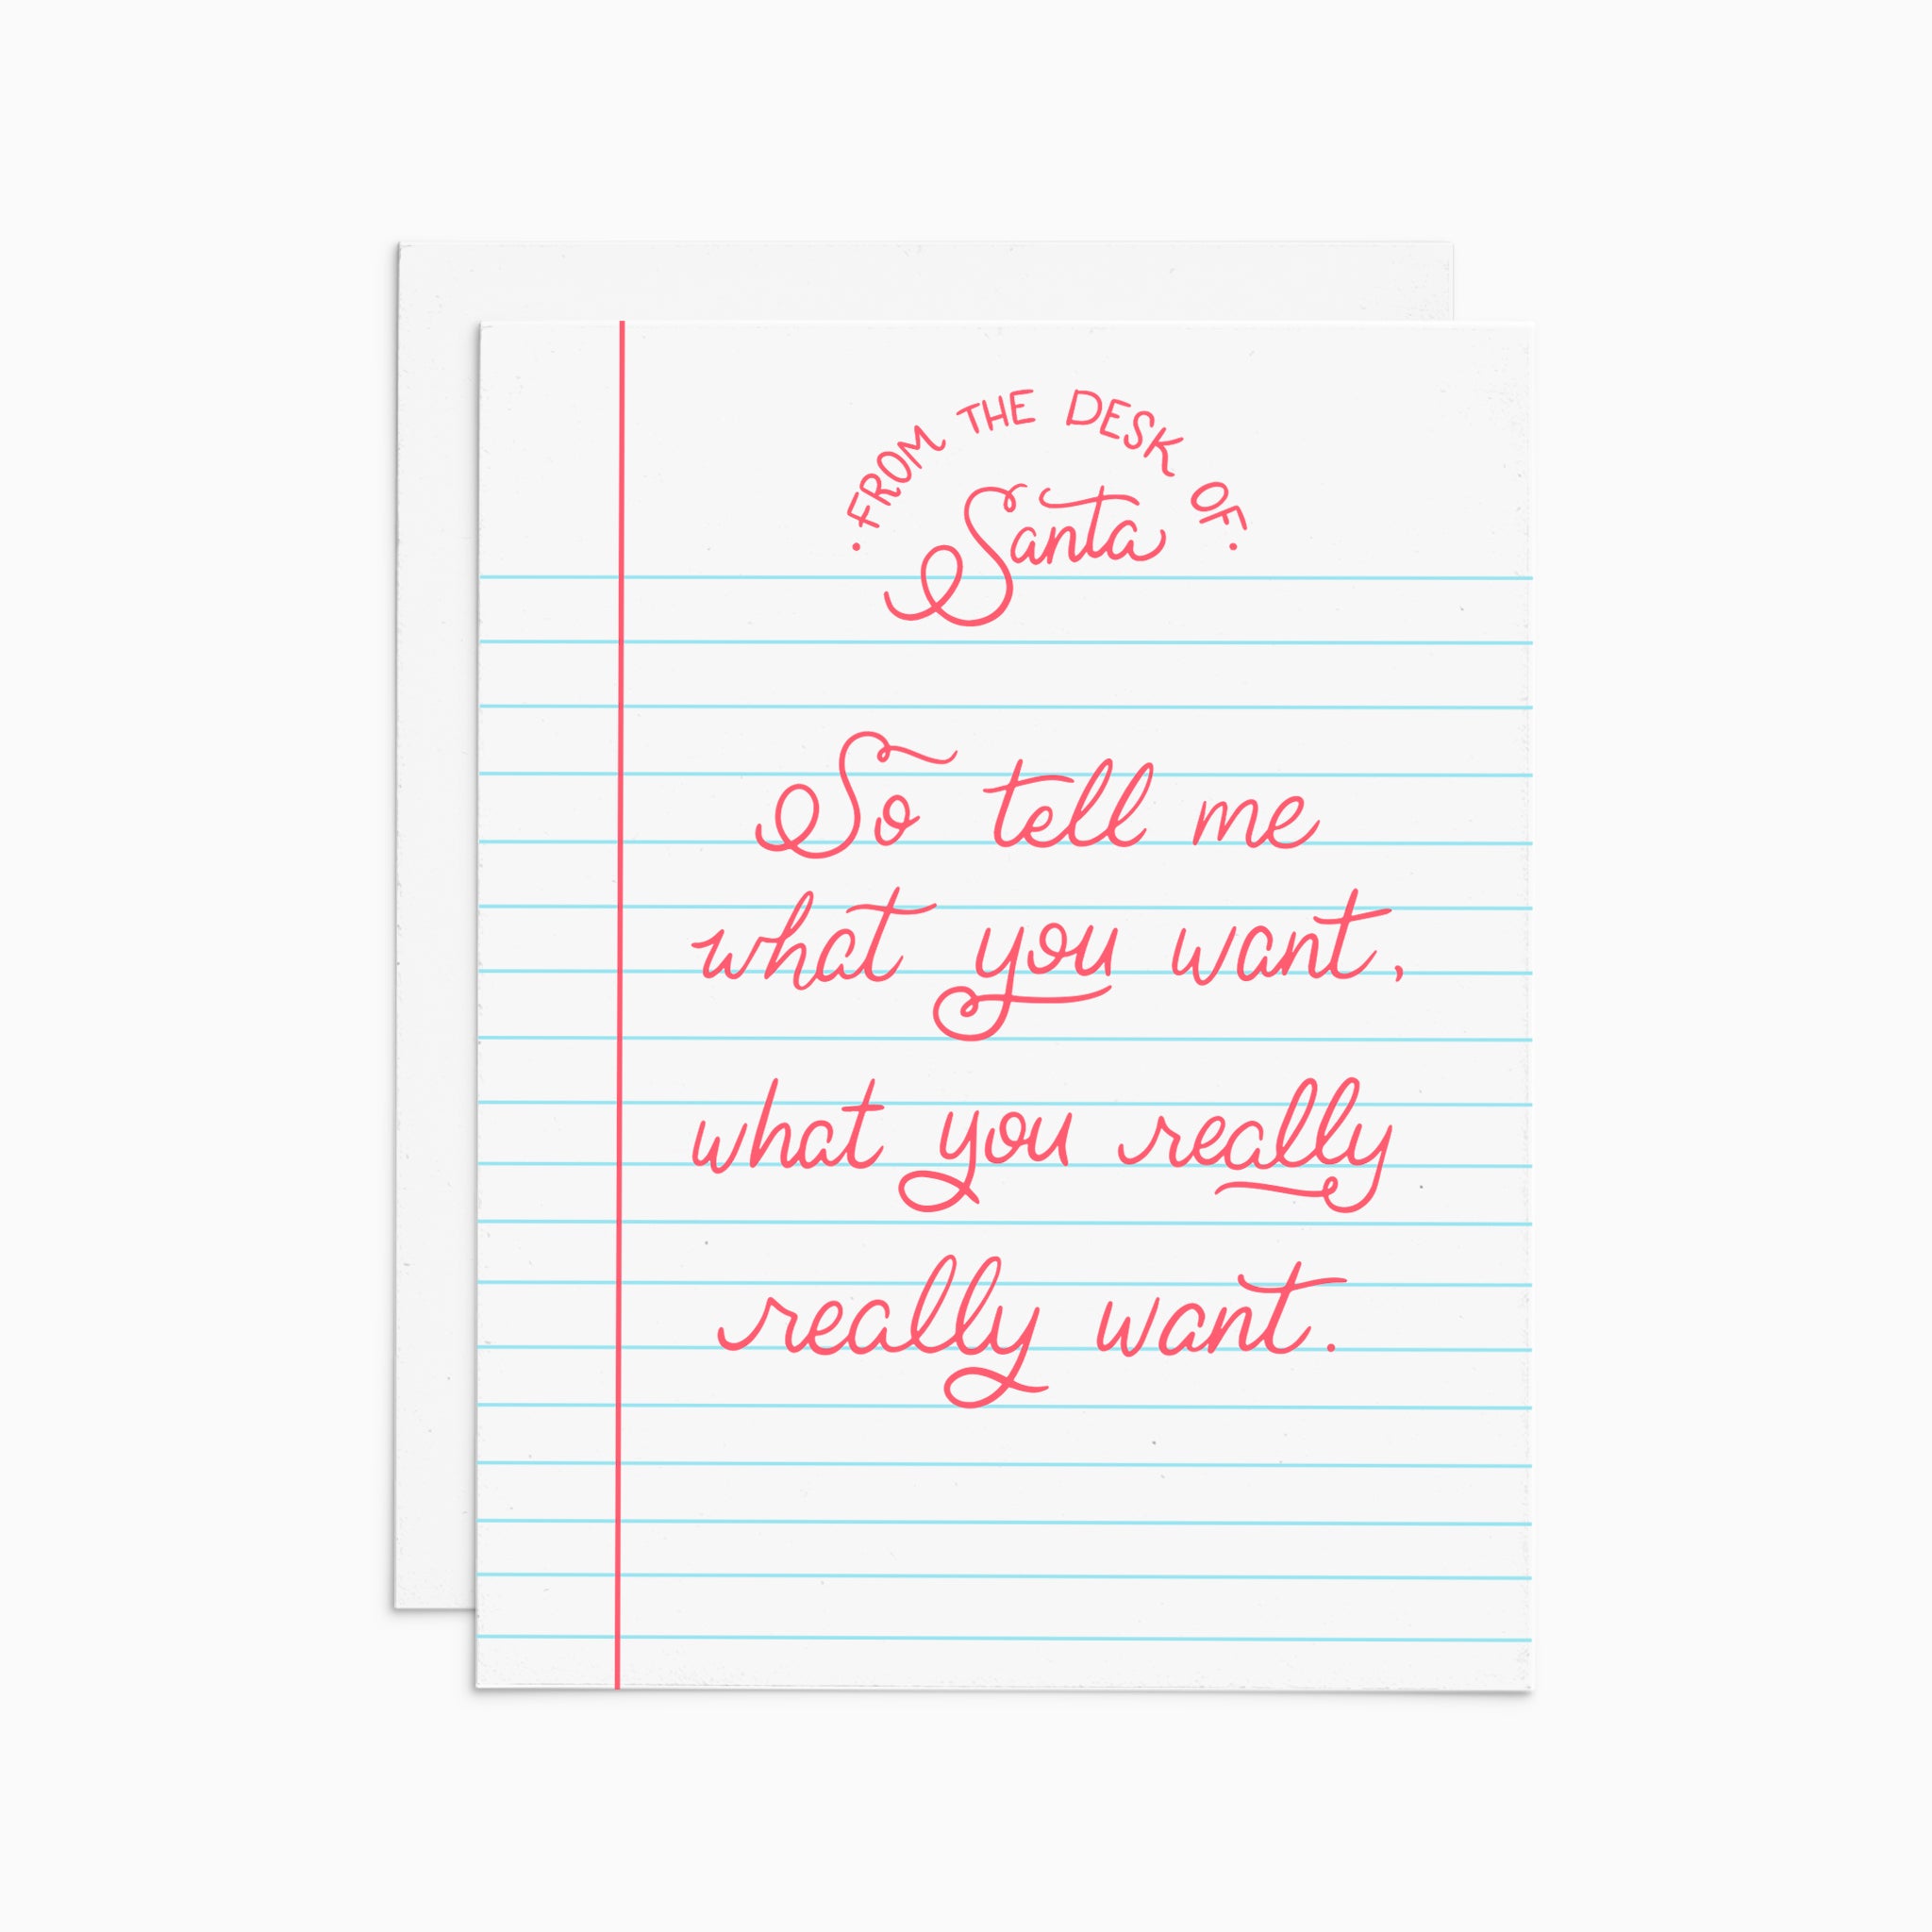 • FROM THE DESK OF •
Santa
So tell me
what you want,
what you really
really want.